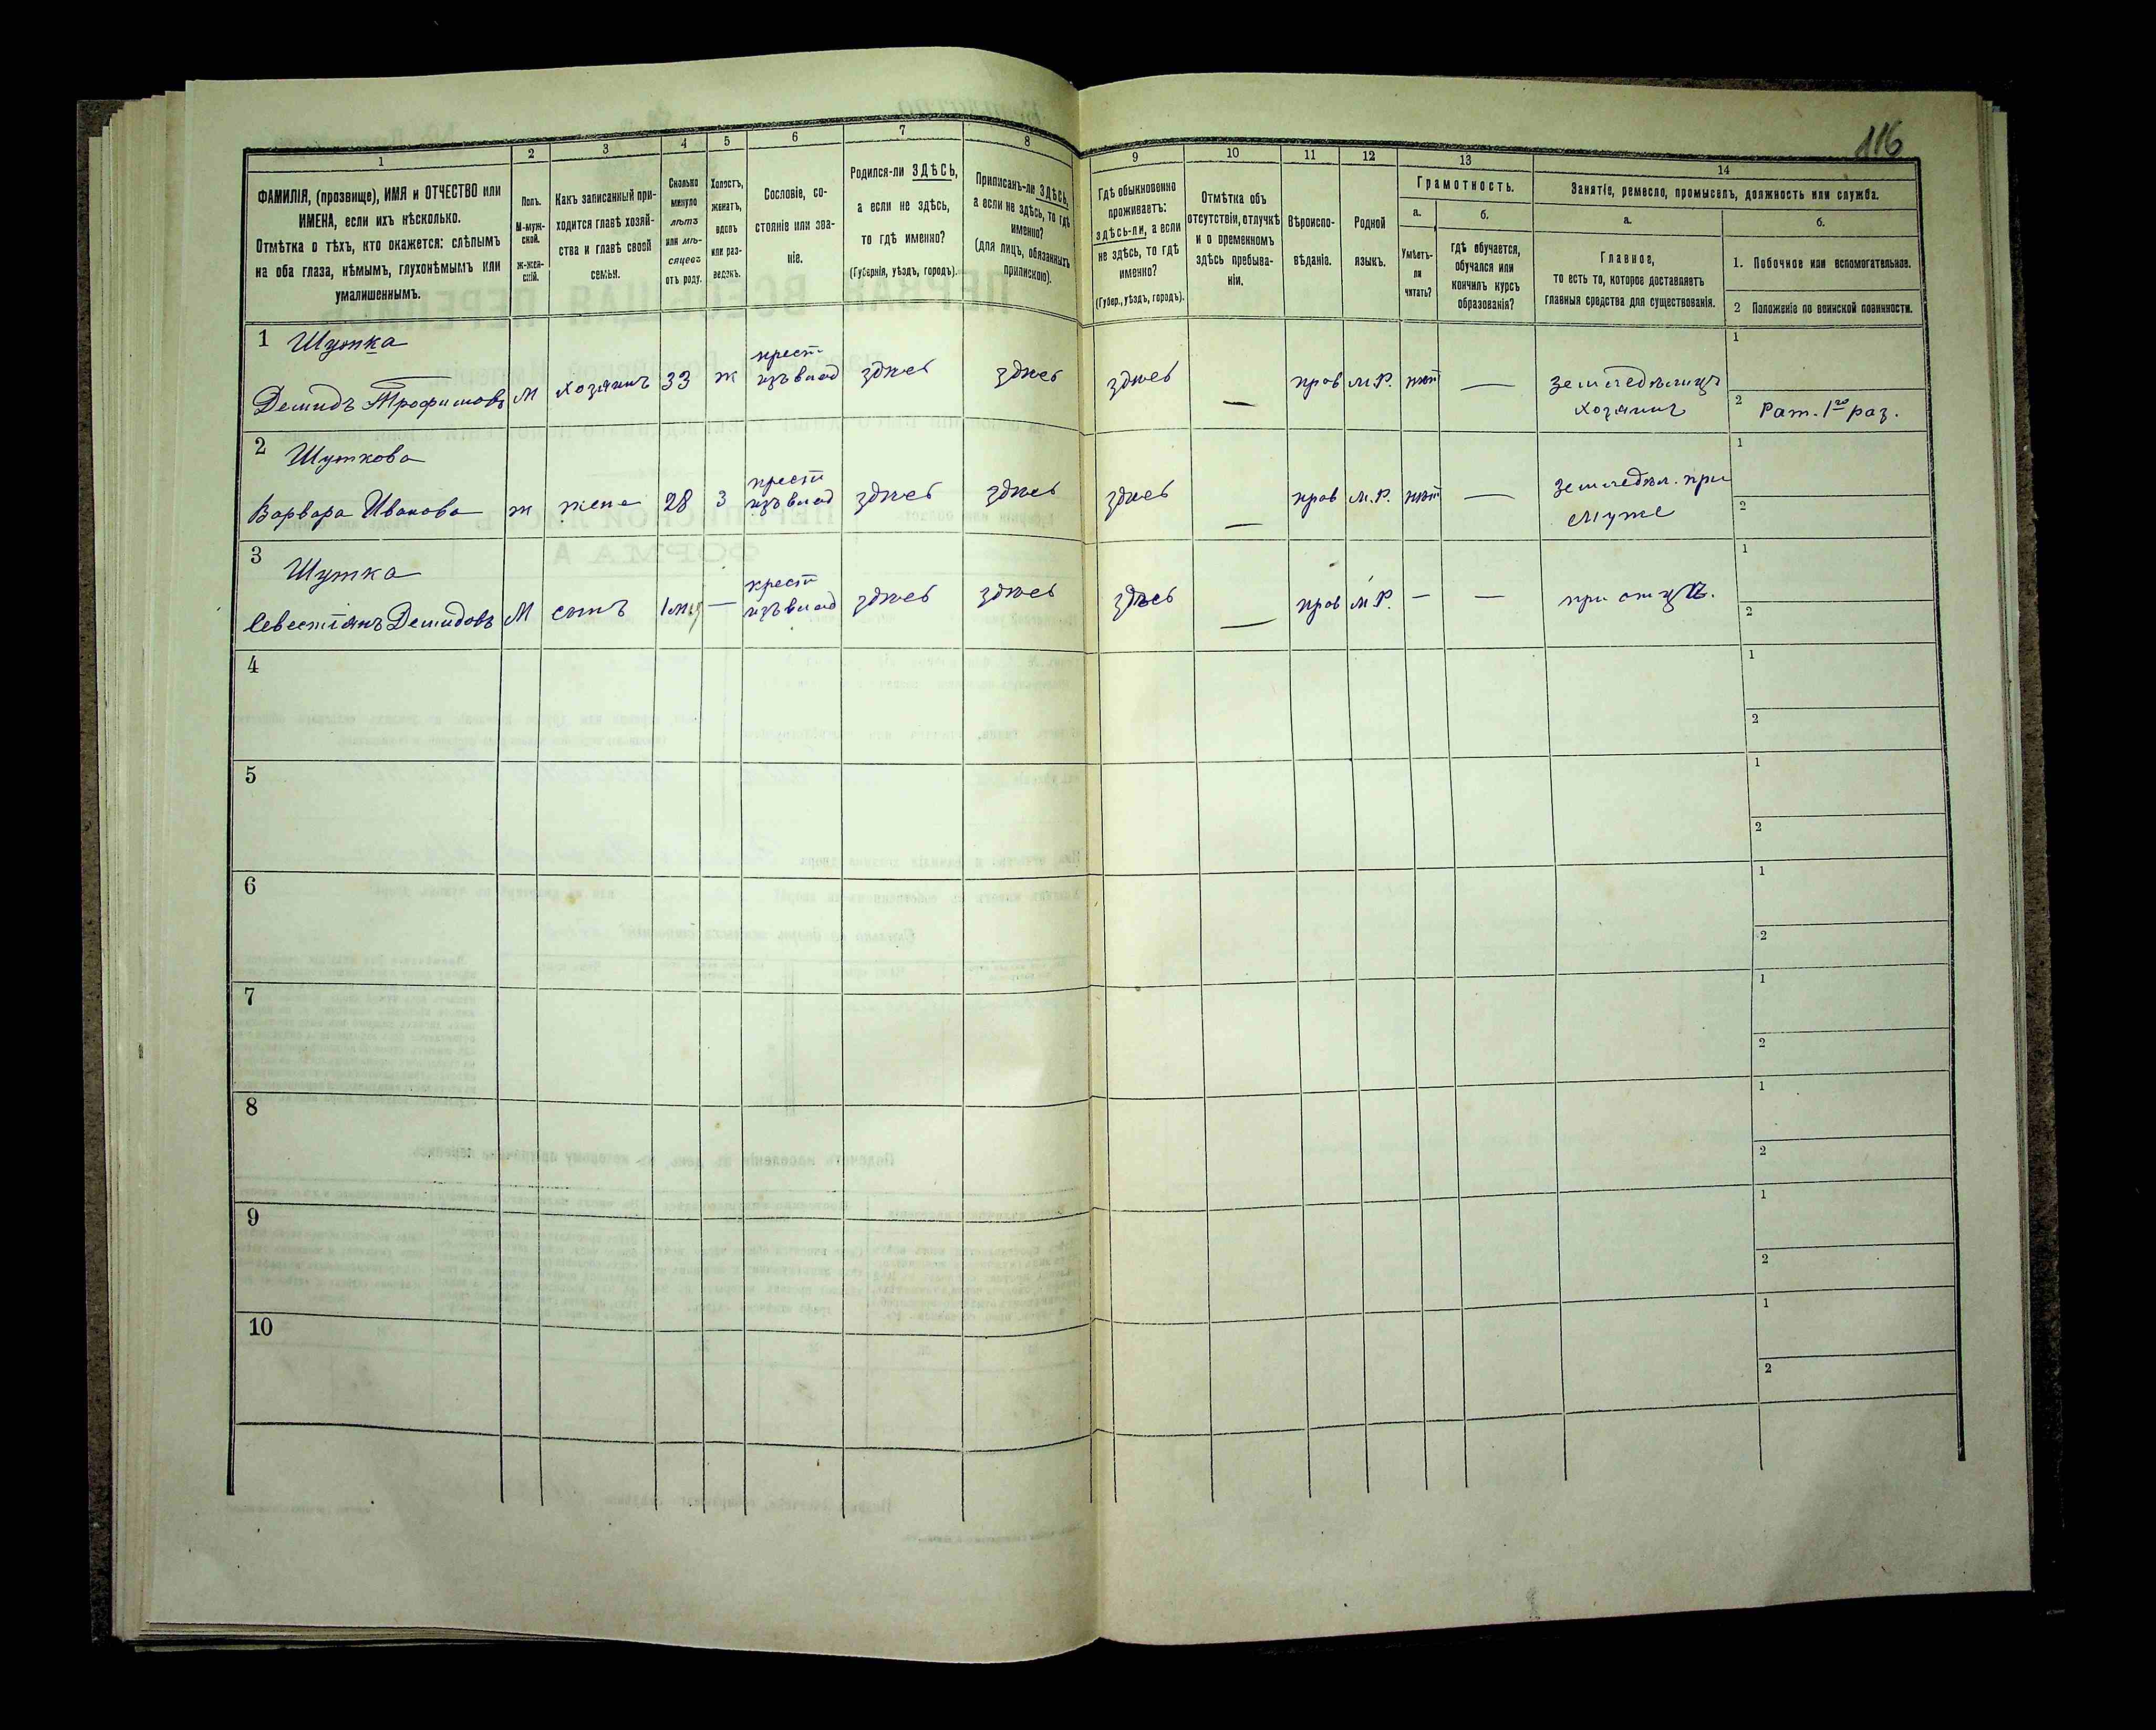 116
1 2 3 4 5 6 7 8 9 10 11 12 13 14
ФАМИЛІЯ, (прозвище), ИМЯ и ОТЧЕСТВО или
ИМЕНА, если ихъ нѣсколько.
Отмѣтка о тѣхъ, кто окажется: слѣпымъ
на оба глаза, нѣмымъ, глухонѣмымъ или
умалишеннымъ.
Полъ.
М-муж-
ской.
Ж-жен-
скій.
Какъ записанный при-
ходится главѣ хозяй-
ства и главѣ своей
семьи.
Сколько
минуло
лѣтъ
или мѣ-
сяцевъ
отъ роду.
Холостъ,
женатъ,
вдовъ
или раз-
веденъ.
Сословіе, со-
стояніе или зва-
ніе.
Родился-ли ЗДѢСЬ,
а если не здѣсь,
то гдѣ именно?
(Губернія, уѣздъ, городъ).
Приписанъ-ли ЗДѢСЬ,
а если не здѣсь, то гдѣ
именно?
(для лицъ, обязанныхъ
припискою).
Гдѣ обыкновенно
проживаетъ:
здѣсь-ли, а если
не здѣсь, то гдѣ
именно?
(Губер., уѣздъ, городъ).
Отмѣтка объ
отсутствіи, отлучкѣ
и о временномъ
здѣсь пребыва-
ніи.
Вѣроиспо-
вѣданіе.
Родной
языкъ.
Грамотность.
а.
Умѣетъ-
ли
читать?
б.
гдѣ обучается,
обучался или
кончилъ курсъ
образованія?
Занятіе, ремесло, промыселъ, должность или служба.
а.
Главное,
то есть то, которое доставляетъ
главныя средства для существованія.
б.
1. Побочное или вспомогательное.
2 Положеніе по воинской повинности.
1 Шутка 1
Демидъ Трофимовъ М хозяинъ 33 ж крест изъ влад здѣсь здѣсь здѣсь — прав М.Р. нѣт — земледѣлецъ
хозяинъ 2 Рат. 1го раз.
2 Шуткова 1
Варвара Иванова ж жена 28 З крест изъ влад здѣсь здѣсь здѣсь — прав М.Р. нѣт — земледѣл. при
мужѣ 2
3 Шутка 1
Севестіянъ Демидовъ М сынъ 1 м — крест изъ влад здѣсь здѣсь здѣсь — прав М.Р. — — при отцѣ. 2
4 1
2
5 1
2
6 1
2
7 1
2
8 1
2
9 1
2
10 1
2